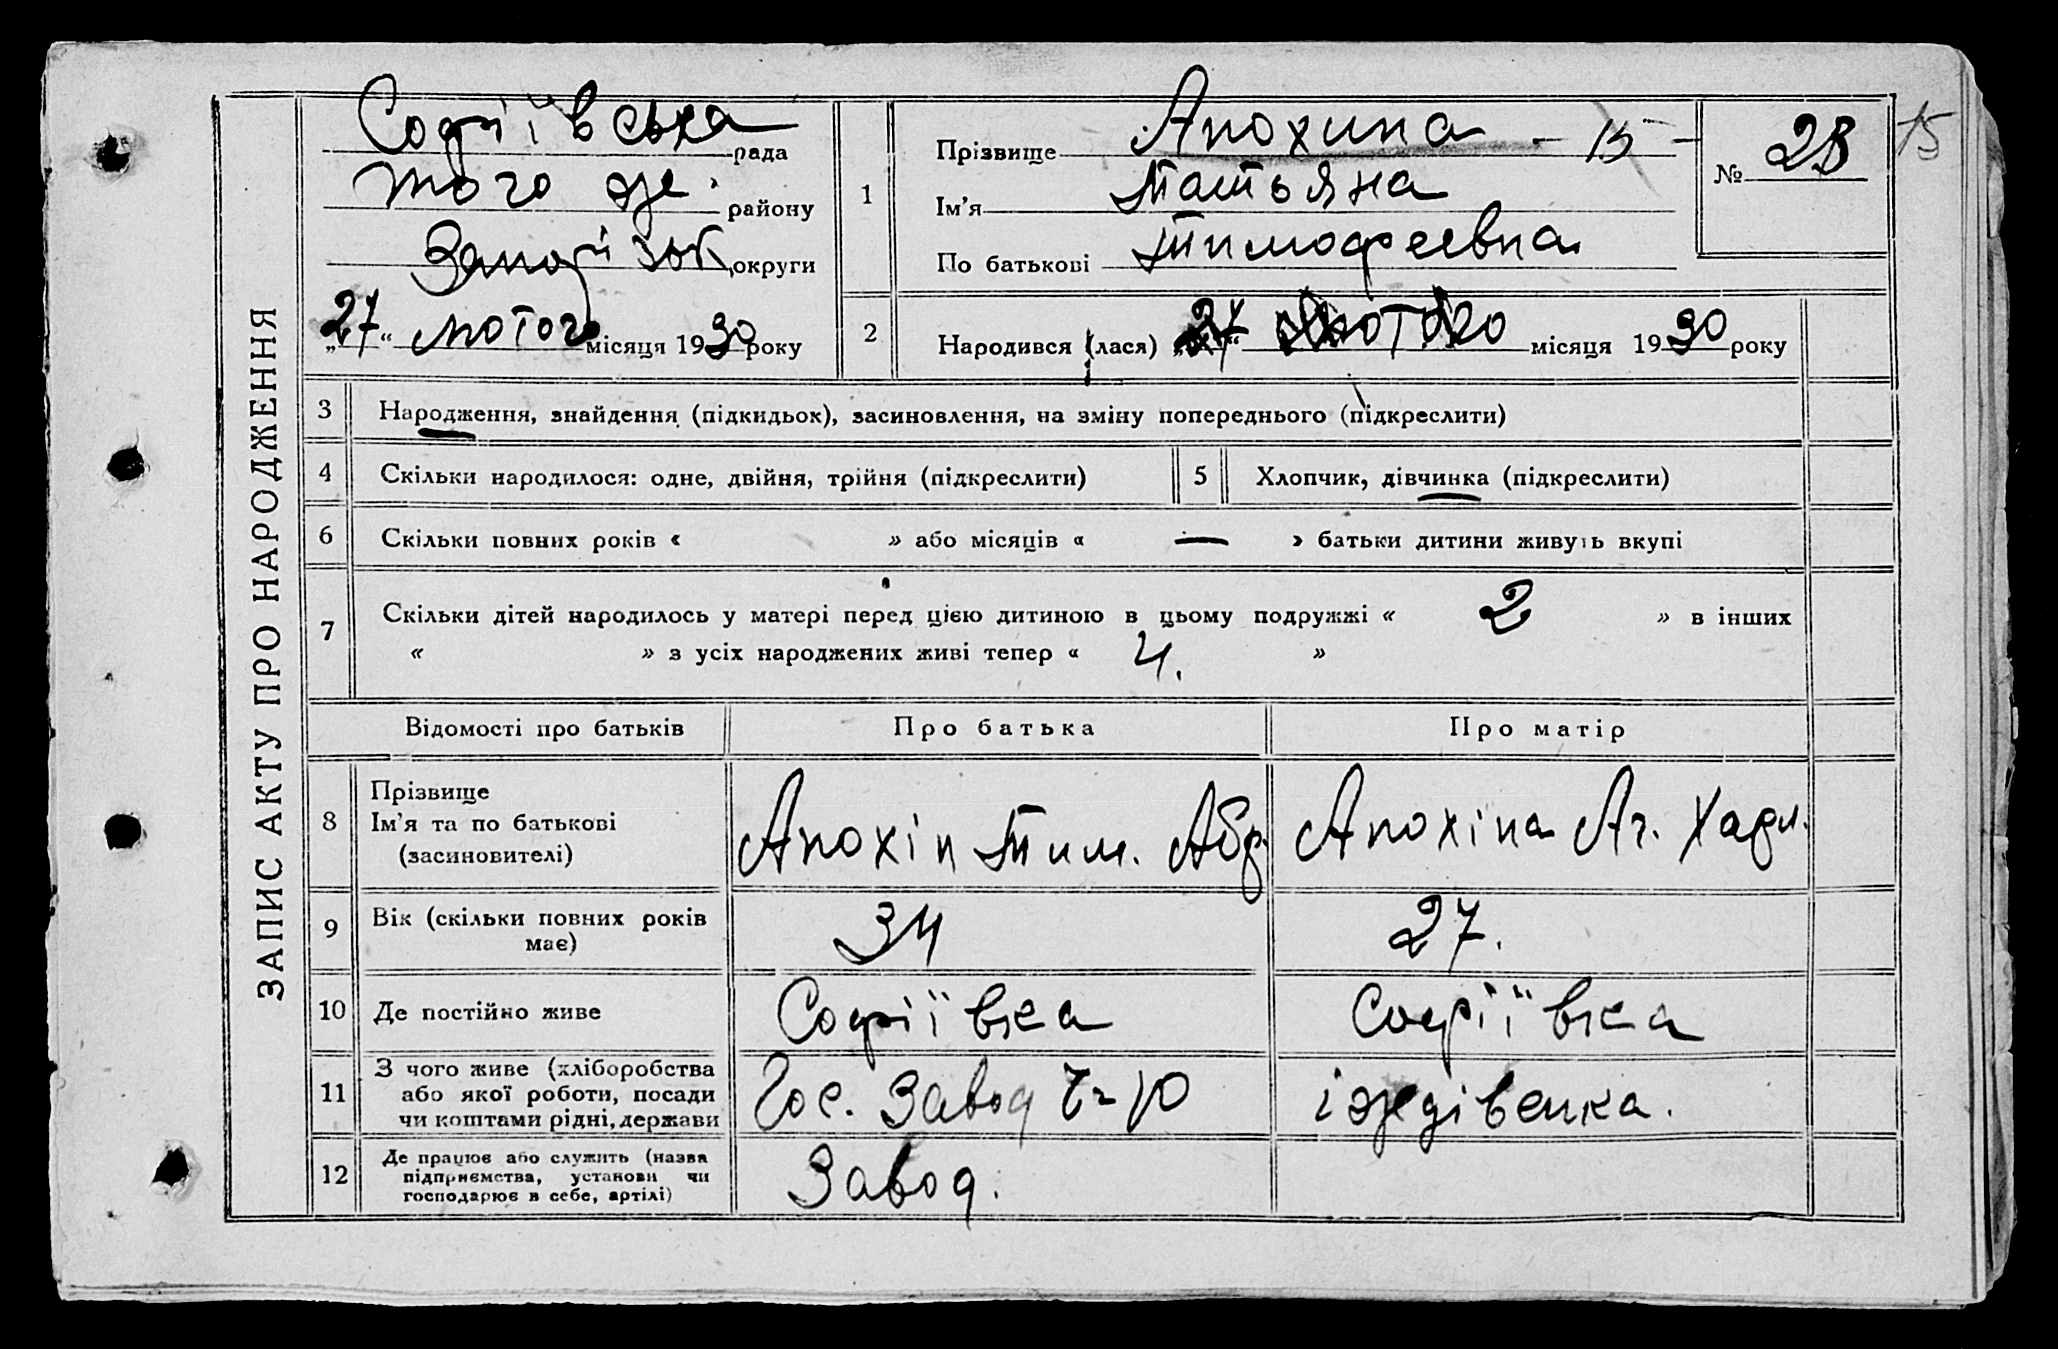 ЗАПИС АКТУ ПРО НАРОДЖЕННЯ
Софіївська рада
того же району
Запоріжок округи
„27“ лютого місяця 1930 року
1
Прізвище Апохина - 15 -
Ім'я Татьяна
По батькові Тимофеевна
№ 28
15
2 Народився (лася) „27“ лютого місяця 1930 року
3 Народження, знайдення (підкидьох), засиновлення, на зміну попереднього (підкреслити)
4 Скільки народилося: одне, двійня, трійня (підкреслити) 5 Хлопчик, дівчинка (підкреслити)
6 Скільки повних років « » або місяців « — » батьки дитини живуть вкупі
7 Скільки дітей народилось у матері перед цією дитиною в цьому подружжі « 2 » в інших
« » з усіх народжених живі тепер « 4. »
Відомості про батьків Про батька Про матір
8 Прізвище
Ім'я та по батькові
(засиновителі)
Апохін Тим. Абр. Апохіна Аг. Харл.
9 Вік (скільки повних років
має)
34 27.
10 Де постійно живе Софіївка Софіївка
11 З чого живе (хліборобства
або якої роботи, посади
чи коштами рідні, держави
Гос. Завод іждівенка.
12 Де працює або служить (назва
підприємства, установи чи
господарює в себе, артілі)
Завод.